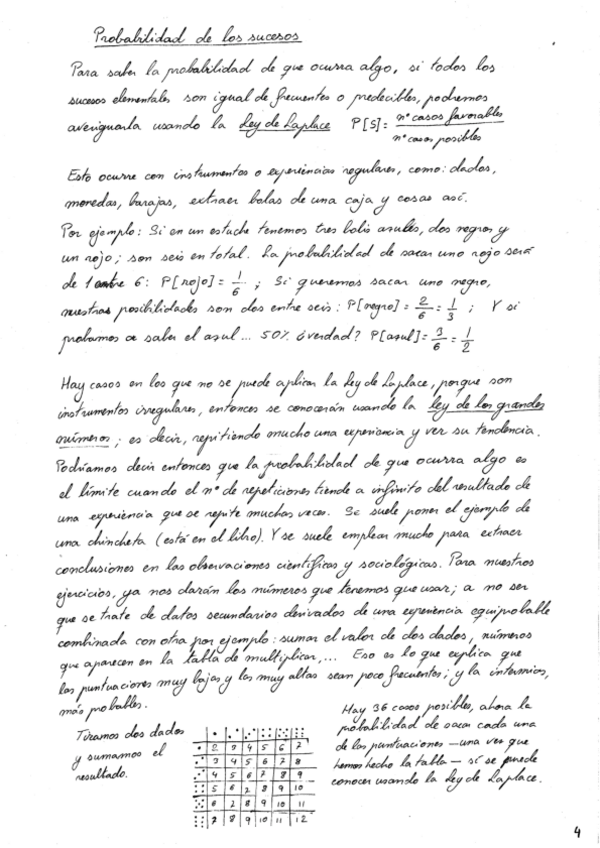 Probabilidad de los sucesos
Para saber la probabilidad de que ocurra algo, si todos los
sucesos elementales son igual de frecuentes o predecibles, podremos
averiguarla usando la Ley de Laplace P[S] = nº casos favorables / nº casos posibles
Esto ocurre con instrumentos o experiencias regulares, como: dados,
monedas, barajas, extraer bolas de una caja y cosas así.
Por ejemplo: Si en un estuche tenemos tres bolis azules, dos negros y
un rojo; son seis en total. La probabilidad de sacar uno rojo será
de 1 entre 6: P[rojo] = 1/6 ; Si queremos sacar uno negro,
nuestras posibilidades son dos entre seis: P[negro] = 2/6 = 1/3 ; Y si
probamos a saber el azul... 50% ¿verdad? P[azul] = 3/6 = 1/2
Hay casos en los que no se puede aplicar la Ley de Laplace, porque son
instrumentos irregulares, entonces se conocerán usando la ley de los grandes
números; es decir, repitiendo mucho una experiencia y ver su tendencia.
Podríamos decir entonces que la probabilidad de que ocurra algo es
el límite cuando el nº de repeticiones tiende a infinito del resultado de
una experiencia que se repite muchas veces. Se suele poner el ejemplo de
una chincheta (está en el libro). Y se suele emplear mucho para extraer
conclusiones en las observaciones científicas y sociológicas. Para nuestros
ejercicios, ya nos darán los números que tenemos que usar; a no ser
que se trate de datos secundarios derivados de una experiencia equiprobable
combinada con otra por ejemplo: sumar el valor de dos dados, números
que aparecen en la tabla de multiplicar,... Eso es lo que explica que
las puntuaciones muy bajas y las muy altas sean poco frecuentes; y la intermedias,
más probables.
Tiramos dos dados
y sumamos el
resultado.
2 3 4 5 6 7
3 4 5 6 7 8
4 5 6 7 8 9
5 6 7 8 9 10
6 7 8 9 10 11
7 8 9 10 11 12
Hay 36 casos posibles, ahora la
probabilidad de sacar cada una
de las puntuaciones —una vez que
hemos hecho la tabla— sí se puede
conocer usando la Ley de Laplace.
4